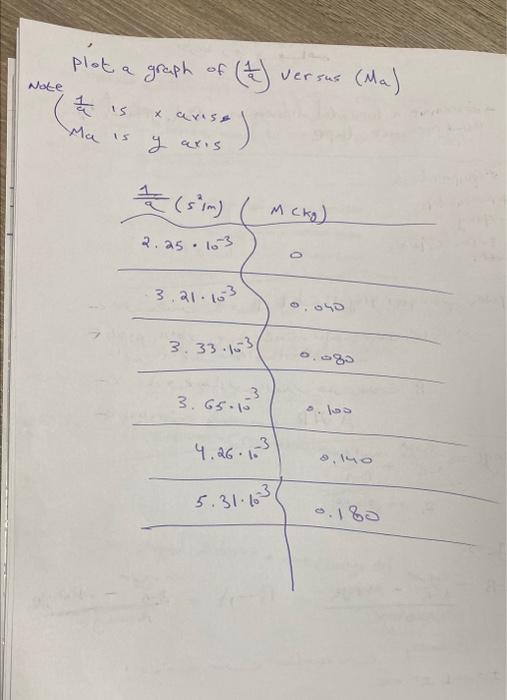 plot a graph of (1/a) versus (Ma)
Note
(1/a is x axis
Ma is y axis)
1/a (s²/m) M (kg)
2.25 · 10⁻³ 0
3.21 · 10⁻³ 0.040
3.33 · 10⁻³ 0.080
3.65 · 10⁻³ 0.100
4.26 · 10⁻³ 0.140
5.31 · 10⁻³ 0.180